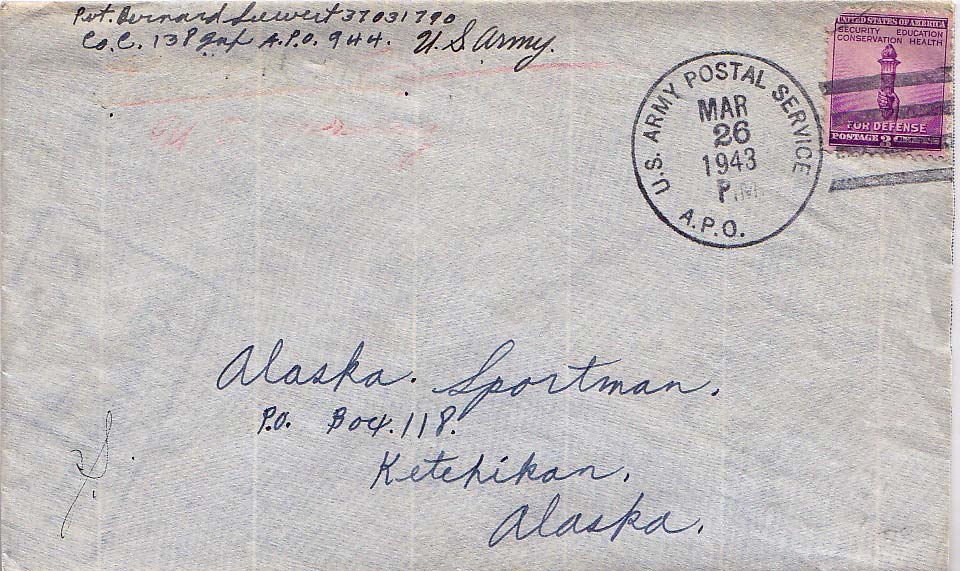 Pvt. Bernard Siewert 37031790
Co. C. 138 Inf A.P.O. 944. U.S Army.
UNITED STATES OF AMERICA
SECURITY EDUCATION
CONSERVATION HEALTH
FOR DEFENSE
POSTAGE 3 CENTS
U.S. ARMY POSTAL SERVICE
MAR
26
1943
P.M.
A.P.O.
Alaska. Sportman.
P.O. Box. 118.
Ketchikan,
Alaska.